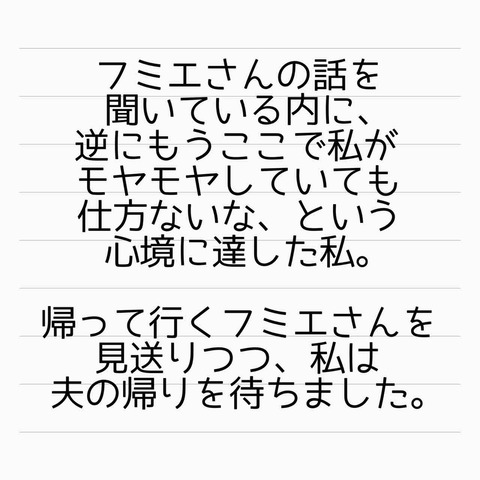 フミエさんの話を
聞いている内に、
逆にもうここで私が
モヤモヤしていても
仕方ないな、という
心境に達した私。
帰って行くフミエさんを
見送りつつ、私は
夫の帰りを待ちました。